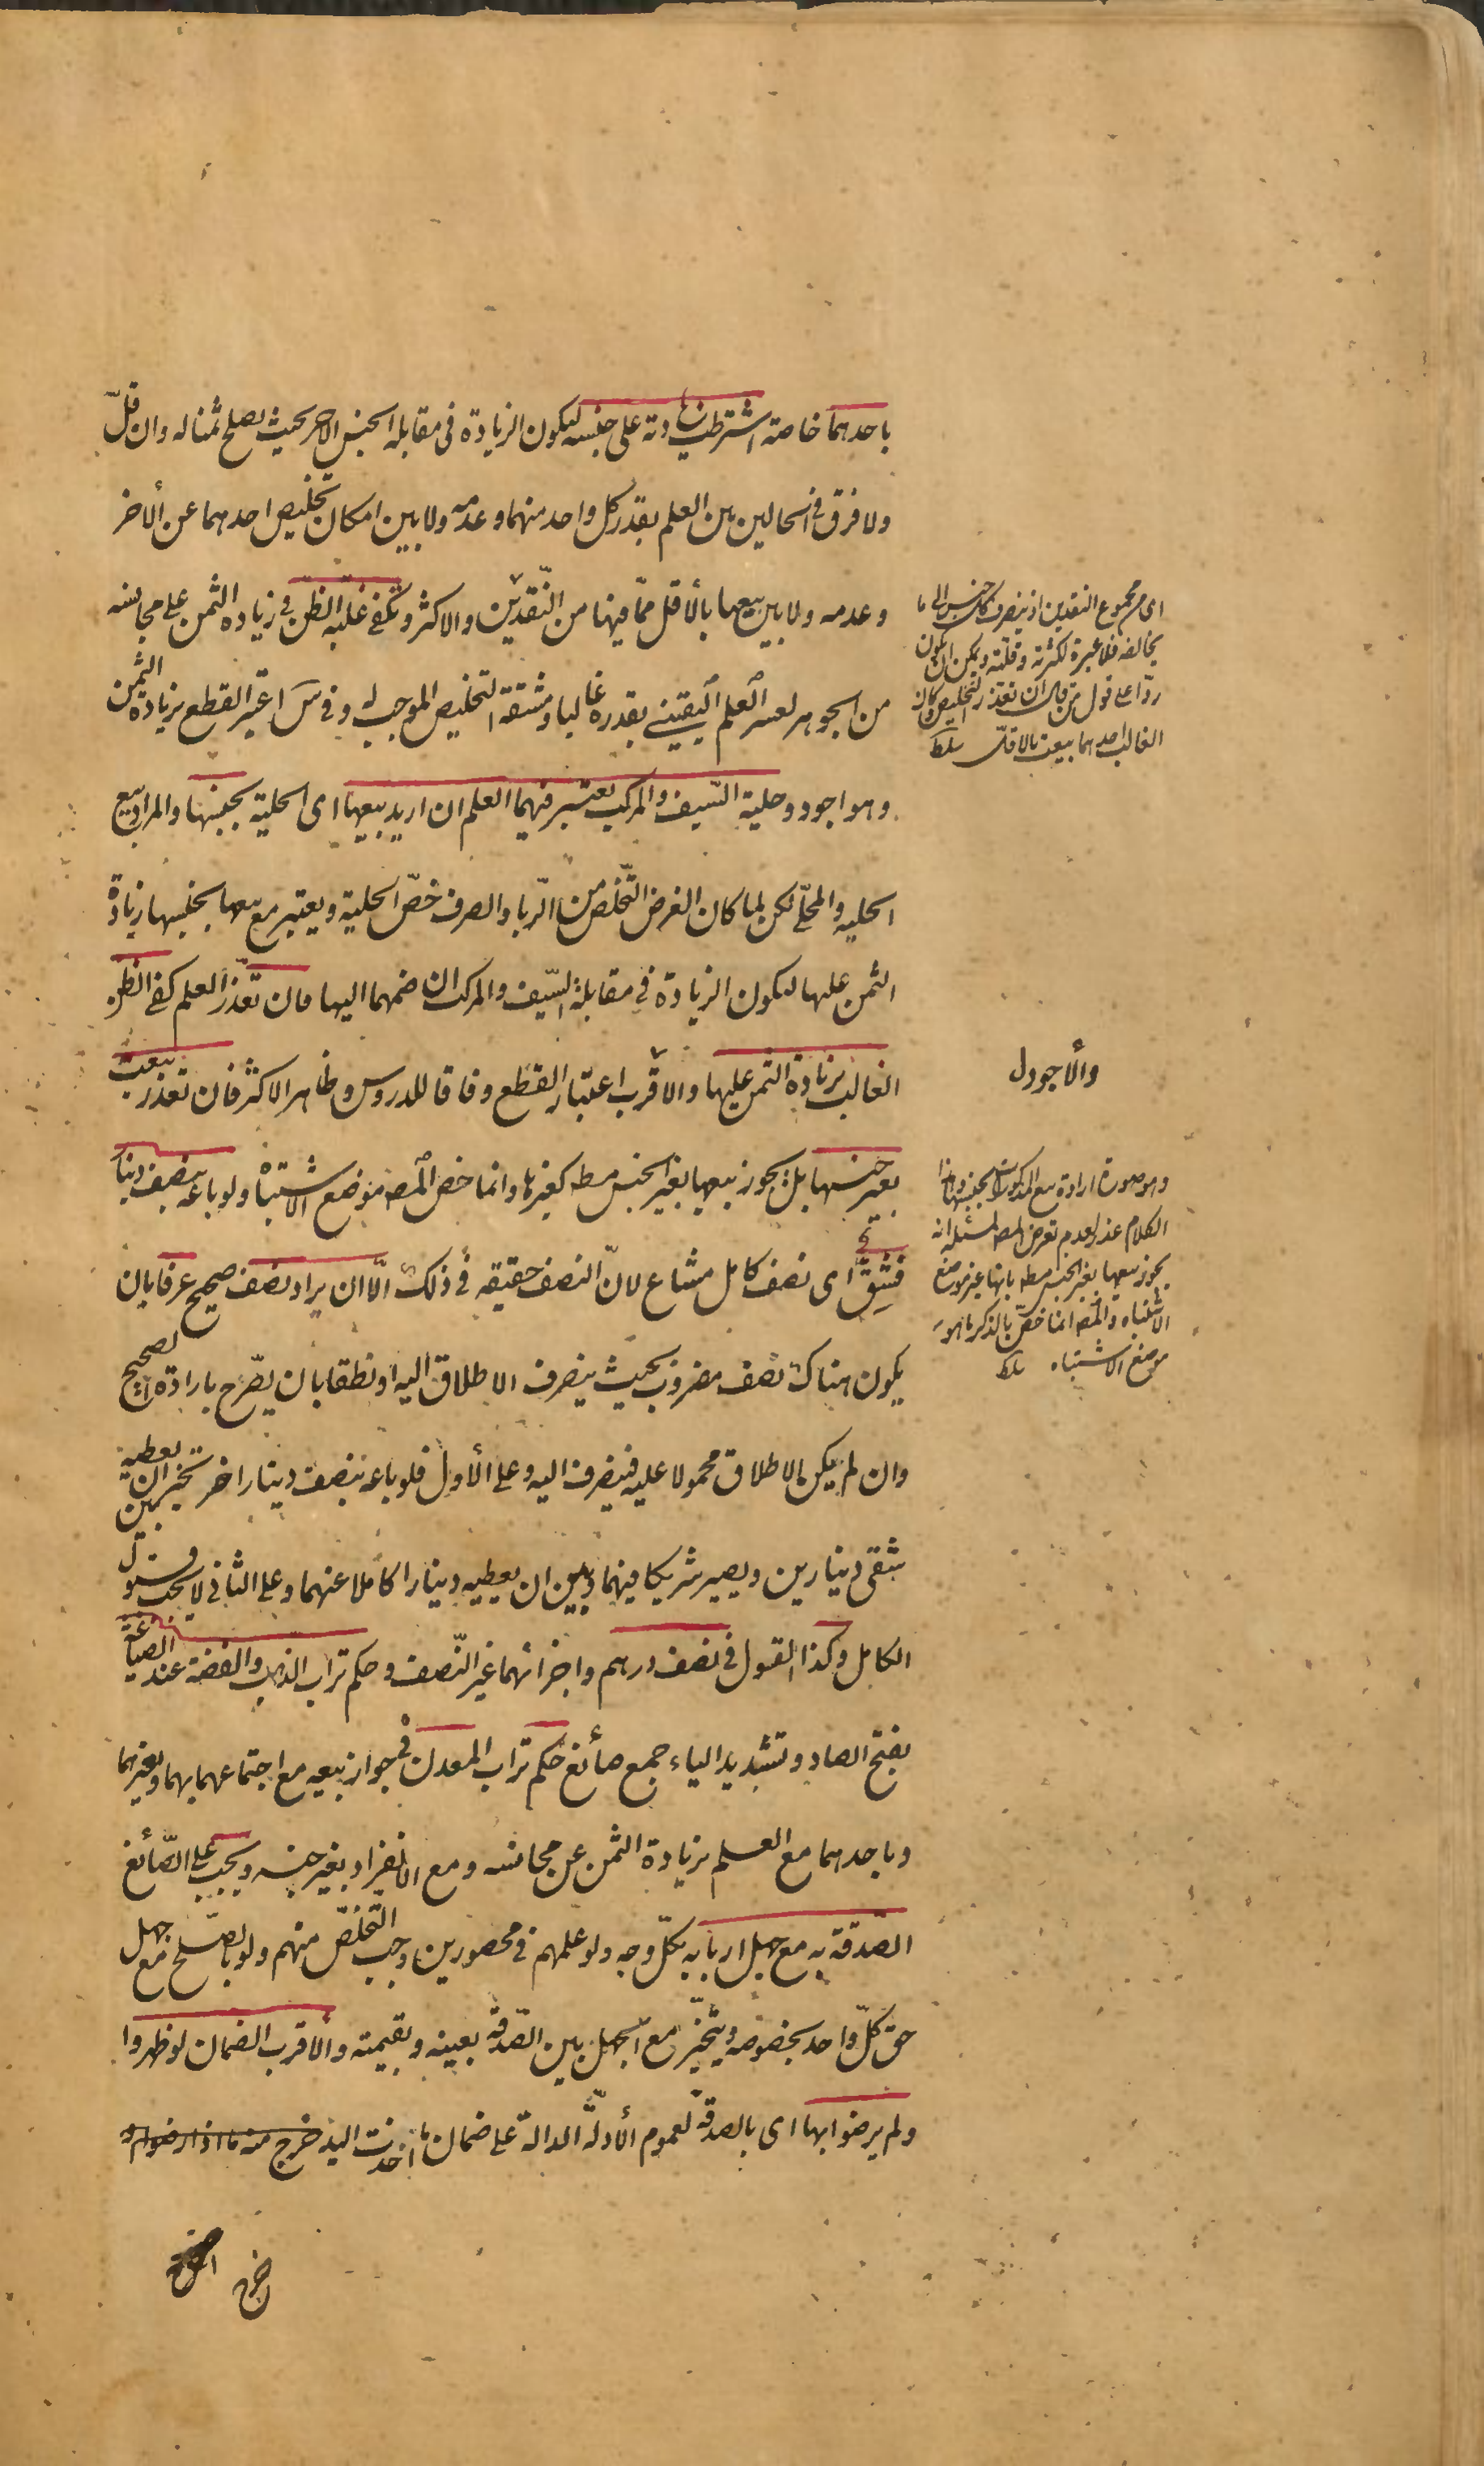 باحدهما خاصة اشترطت زيادته على جنسه لتكون الزيادة فى مقابلة الجنس الاخر بحيث يصلح ثمنا له وان قلّ
ولا فرق فى الحالين بين العلم بقدر كل واحد منهما وعدمه ولا بين امكان تخليص احدهما عن الأخر
وعدمه ولا بين بيعها بالأقل ممّا فيها من النّقدين والاكثر وتكفى غلبة الظنّ فى زيادة الثمن على مجانسه
من الجوهر لعسر العلم اليقينى بقدره غالبا ومشقة التخليص الموجب له وفى س اعتبر القطع بزيادة الثمن
وهو اجود وحلية السّيف والمركب يعتبر فيهما العلم ان اريد بيعها اى الحلية بجنسها والمراد بيع
الحلية والمحلّى لكن لما كان الغرض التّخلص من الرّبا والصرف خصّ الحلية ويعتبر مع بيعها بجنسها زيادة
الثمن عليها لتكون الزيادة فى مقابلة السّيف والمركب ان ضمهما اليها فان تعذّر العلم كفى الظن
الغالب بزيادة الثمن عليها والاقرب اعتبار القطع وفاقا للدروس وظاهر الاكثر فان تعذر بيعت
بغير جنسها بل يجوز بيعها بغير الجنس مط كغيرها وانما خص المصه موضع الاشتباه ولو باعه بنصف دينار
فشقّ اى نصف كامل مشاع لانّ النصف حقيقة فى ذلك الّا ان يراد نصف صحيح عرفا بان
يكون هناك نصف مضروب بحيث ينصرف الاطلاق اليه او نطقا بان يصّرح بارادة الصحيح
وان لم يكن الاطلاق محمولا عليه فينصرف اليه وعلى الأول فلو باعه بنصف دينار اخر تخير بين ان يعطيه
شقى دينارين ويصير شريكا فيهما وبين ان يعطيه دينارا كاملا عنهما وعلى الثانى لا يجب قبول
الكامل وكذا القول فى نصف درهم واجزائهما غير النّصف وحكم تراب الذهب والفضة عند الصياغة
بفتح الصاد وتشديد الياء جمع صائغ حكم تراب المعدن فى جواز بيعه مع اجتماعهما بهما وبغيرهما
وباحدهما مع العلم بزيادة الثمن عن مجانسه ومع الانفراد بغير جنسه ويجب على الصّائغ
الصّدقة به مع جهل اربابه بكلّ وجه ولو علمهم فى محصورين وجب التّخلّص منهم ولو بالصّلح مع جهل
حق كلّ واحد بخصوصه ويتخيّر مع الجهل بين الصّدقة بعينه وبقيمته والاقرب الضمان لو ظهروا
ولم يرضوا بها اى بالصدقة لعموم الأدلّة الدالة على ضمان ما اخذت اليد خرج منه ما اذا رضوا
خرج
اى مجموع النقدين اذ ينصرف كل جنس الى ما
يخالفه فلا عبرة لكثرته وقلته ويمكن ان يكون
ردّا على قول من قال ان تعذر التخليص وكان
الغالب احدهما بيعت بالاقلّ سلط
والاجود ل
وهو صورة ارادة بيع المذكورات بجنسها وهذا
الكلام عذر لعدم تعرض المصه لمسئلة انه
يجوز بيعها بغير الجنس مط بانها غير موضع
الاشتباه والمصه انما خصّ بالذكر ما هو
موضع الاشتباه سلط